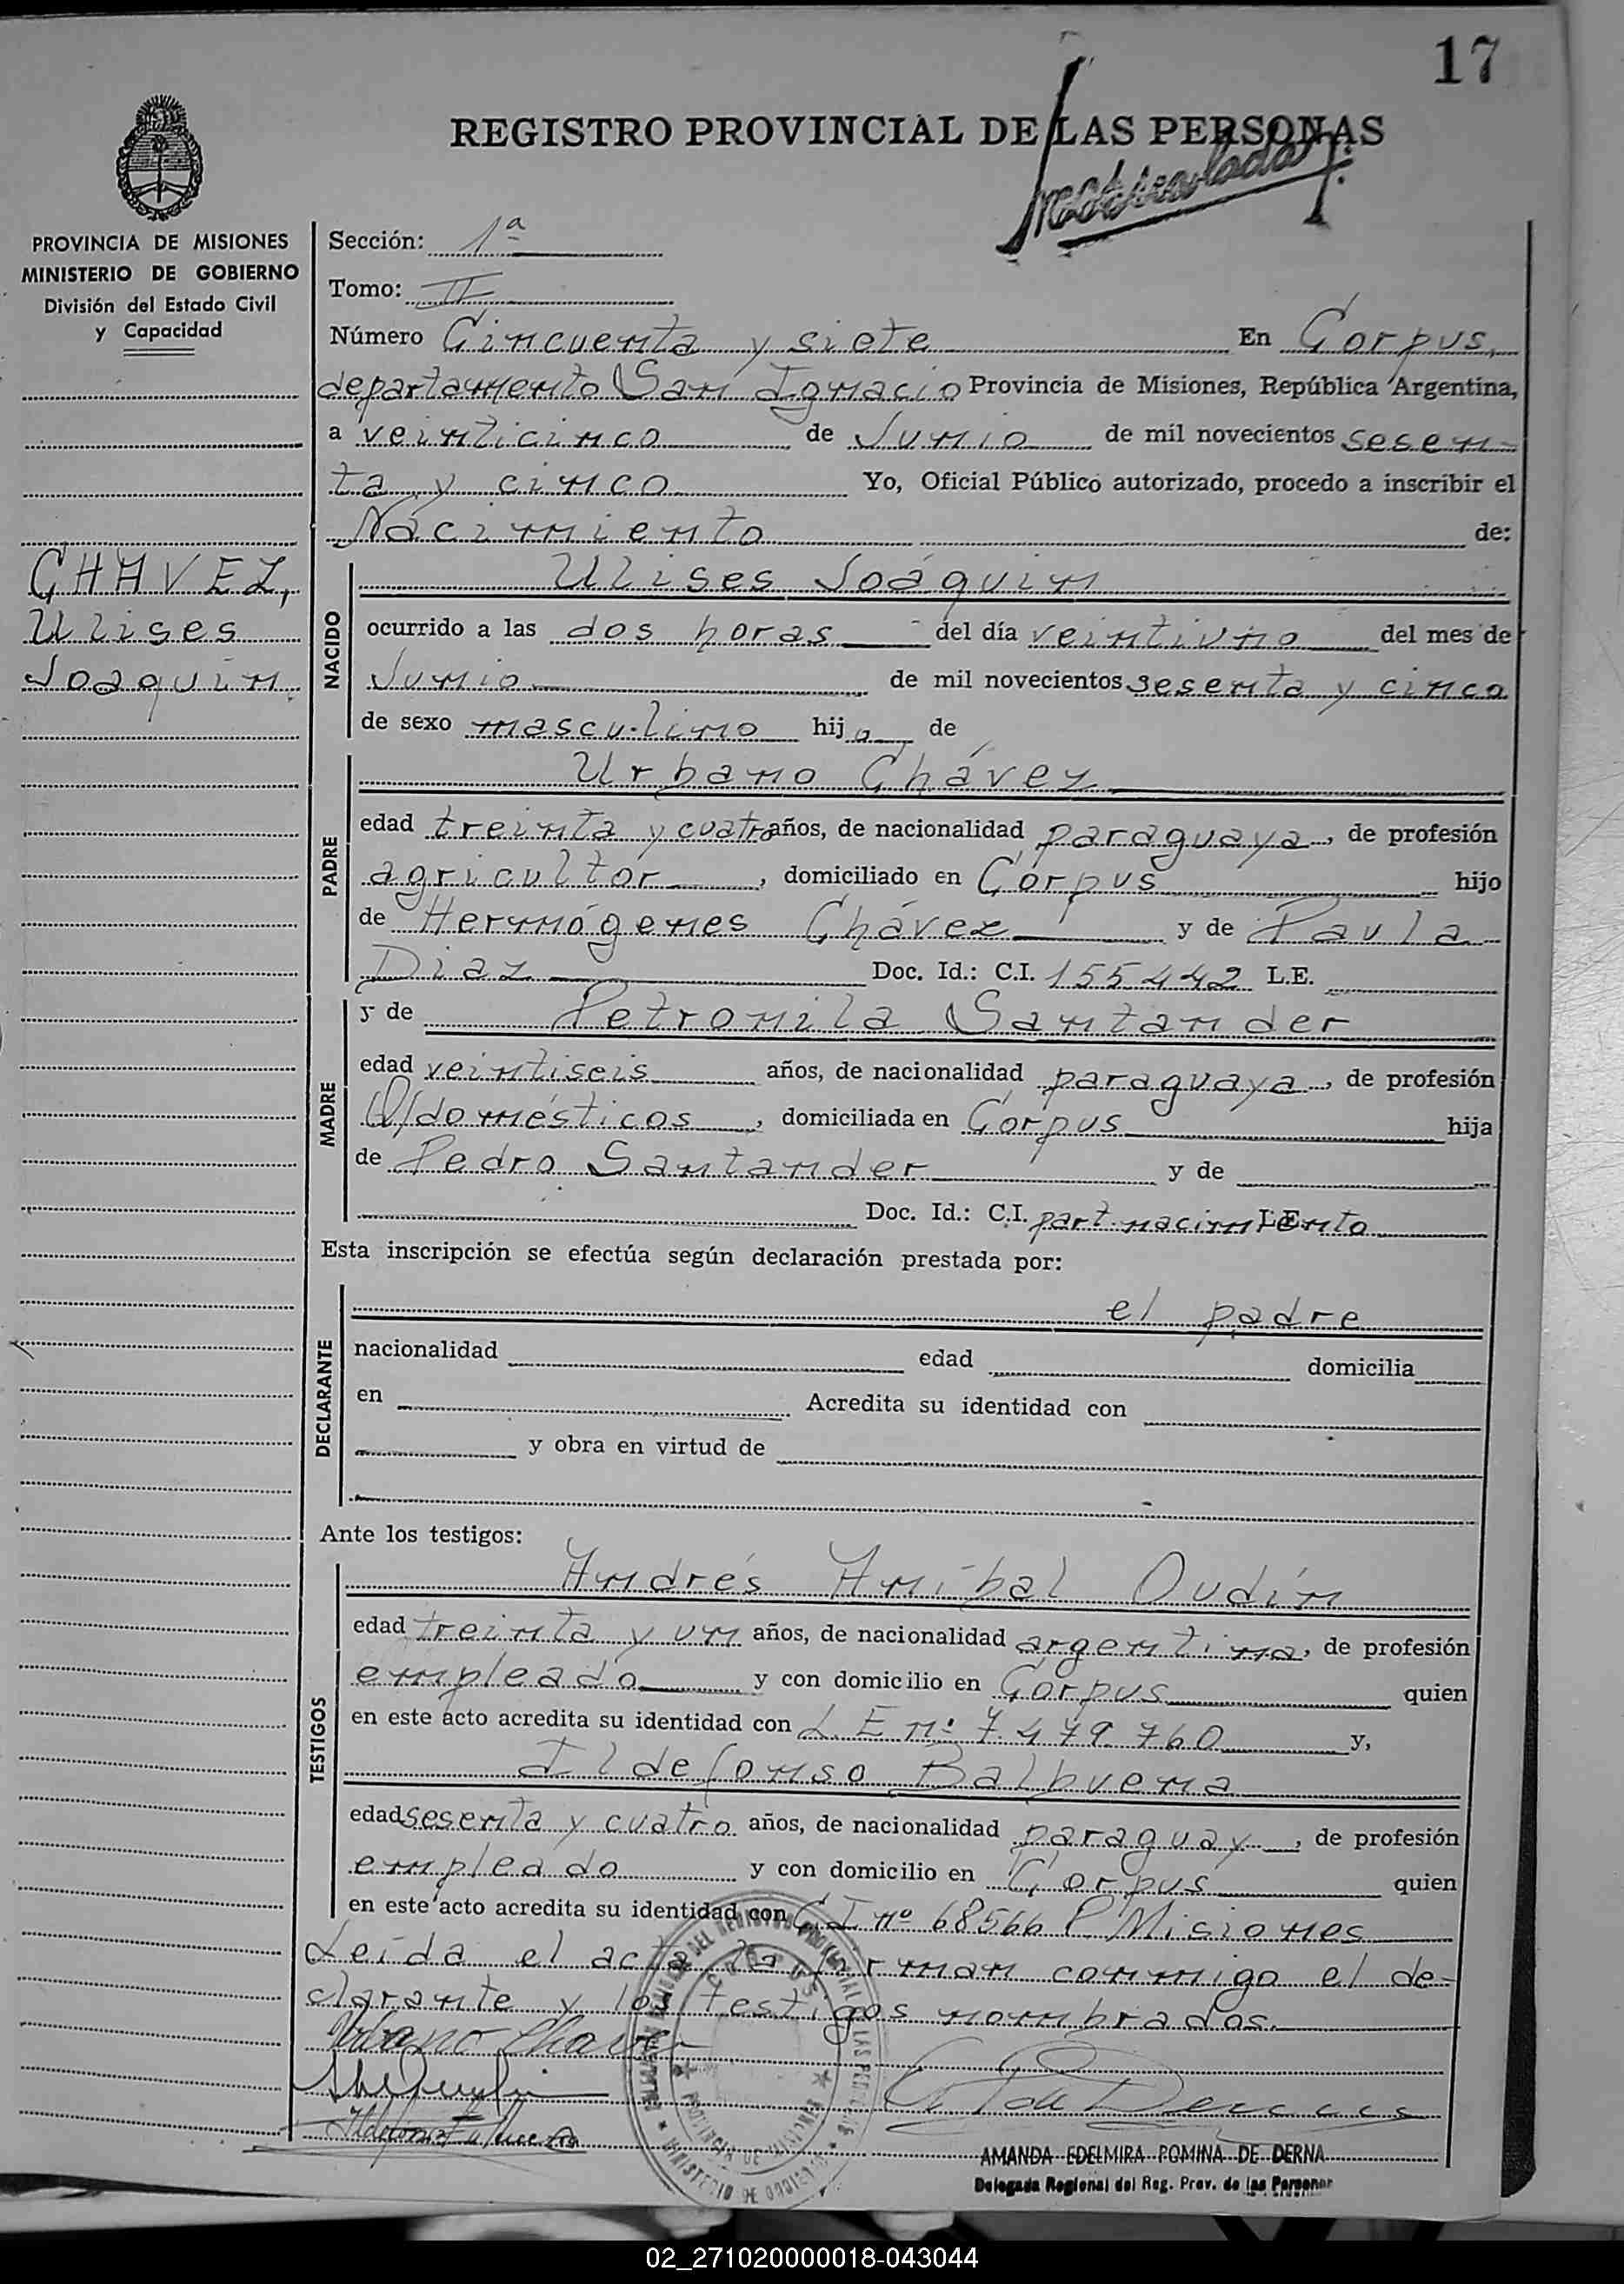 17
REGISTRO PROVINCIAL DE LAS PERSONAS
PROVINCIA DE MISIONES
MINISTERIO DE GOBIERNO
División del Estado Civil
y Capacidad
Sección: 1ª
Tomo: II
Número Cincuenta y siete En Corpus,
departamento San Ignacio Provincia de Misiones, República Argentina,
a veinticinco de Junio de mil novecientos sesen-
ta y cinco Yo, Oficial Público autorizado, procedo a inscribir el
Nacimiento de:
CHAVEZ,
Ulises
Joaquin.
NACIDO
Ulises Joáquin
ocurrido a las dos horas del día veintiuno del mes de
Junio de mil novecientos sesenta y cinco
de sexo masculino hijo de
PADRE
Urbano Chávez
edad treinta y cuatro años, de nacionalidad paraguaya, de profesión
agricultor, domiciliado en Corpus hijo
de Hermógenes Chávez y de Paula
Diaz Doc. Id.: C.I. 155442 L.E.
MADRE
y de Petronila Santander
edad veintiseis años, de nacionalidad paraguaya, de profesión
Q/domésticos, domiciliada en Corpus hija
de Pedro Santander y de
Doc. Id.: C.I. part. nacimiento L.E.
Esta inscripción se efectúa según declaración prestada por:
DECLARANTE
el padre
nacionalidad edad domicilia
en Acredita su identidad con
y obra en virtud de
Ante los testigos:
TESTIGOS
Andrés Aníbal Oudín
edad treinta y un años, de nacionalidad argentina, de profesión
empleado y con domicilio en Corpus quien
en este acto acredita su identidad con L E nº 7.479.760 y,
Ildefonso Balbuena
edad sesenta y cuatro años, de nacionalidad paraguay, de profesión
empleado y con domicilio en Corpus quien
en este acto acredita su identidad con C I nº 68566 P Misiones
Leida el acta la firman conmigo el de-
clarante y los testigos nombrados.
Urbano Chavez
AMANDA EDELMIRA ROMINA DE DERNA
Delegada Regional del Reg. Prov. de las Personas
02_271020000018-043044